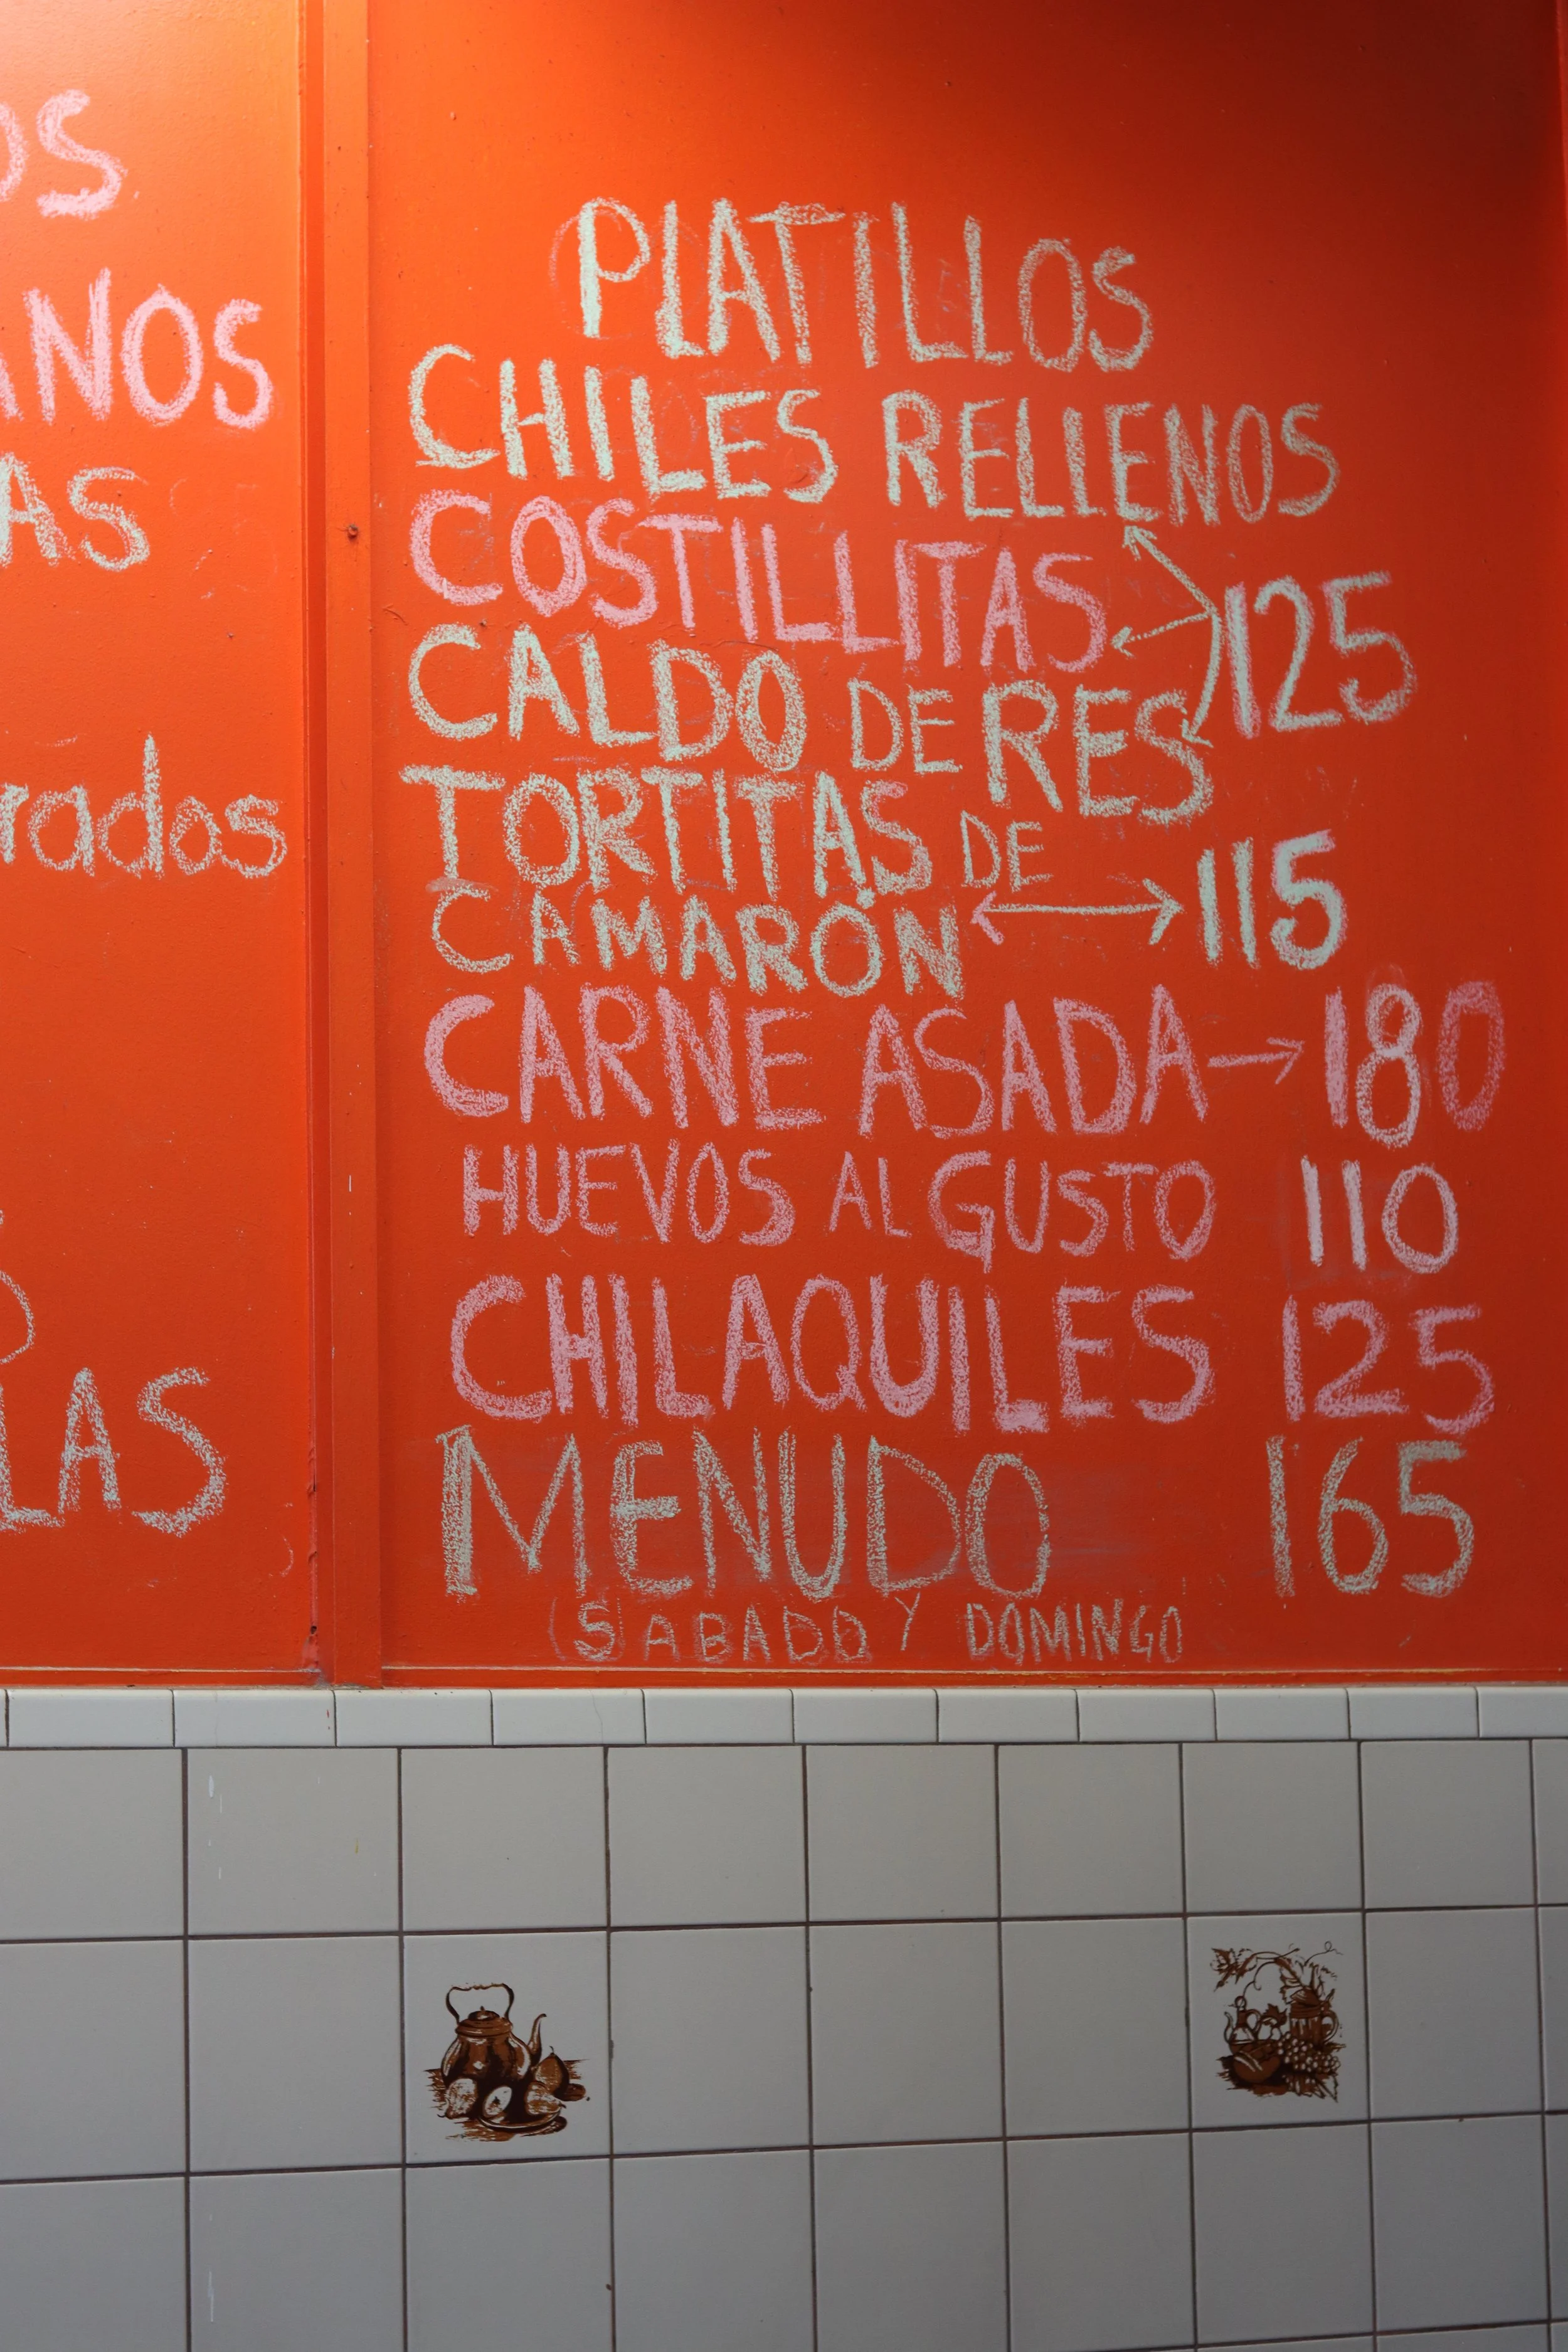 PLATILLOS
CHILES RELLENOS
COSTILLITAS 125
CALDO DE RES
TORTITAS DE
CAMARÓN 115
CARNE ASADA 180
HUEVOS AL GUSTO 110
CHILAQUILES 125
MENUDO 165
(SABADO Y DOMINGO